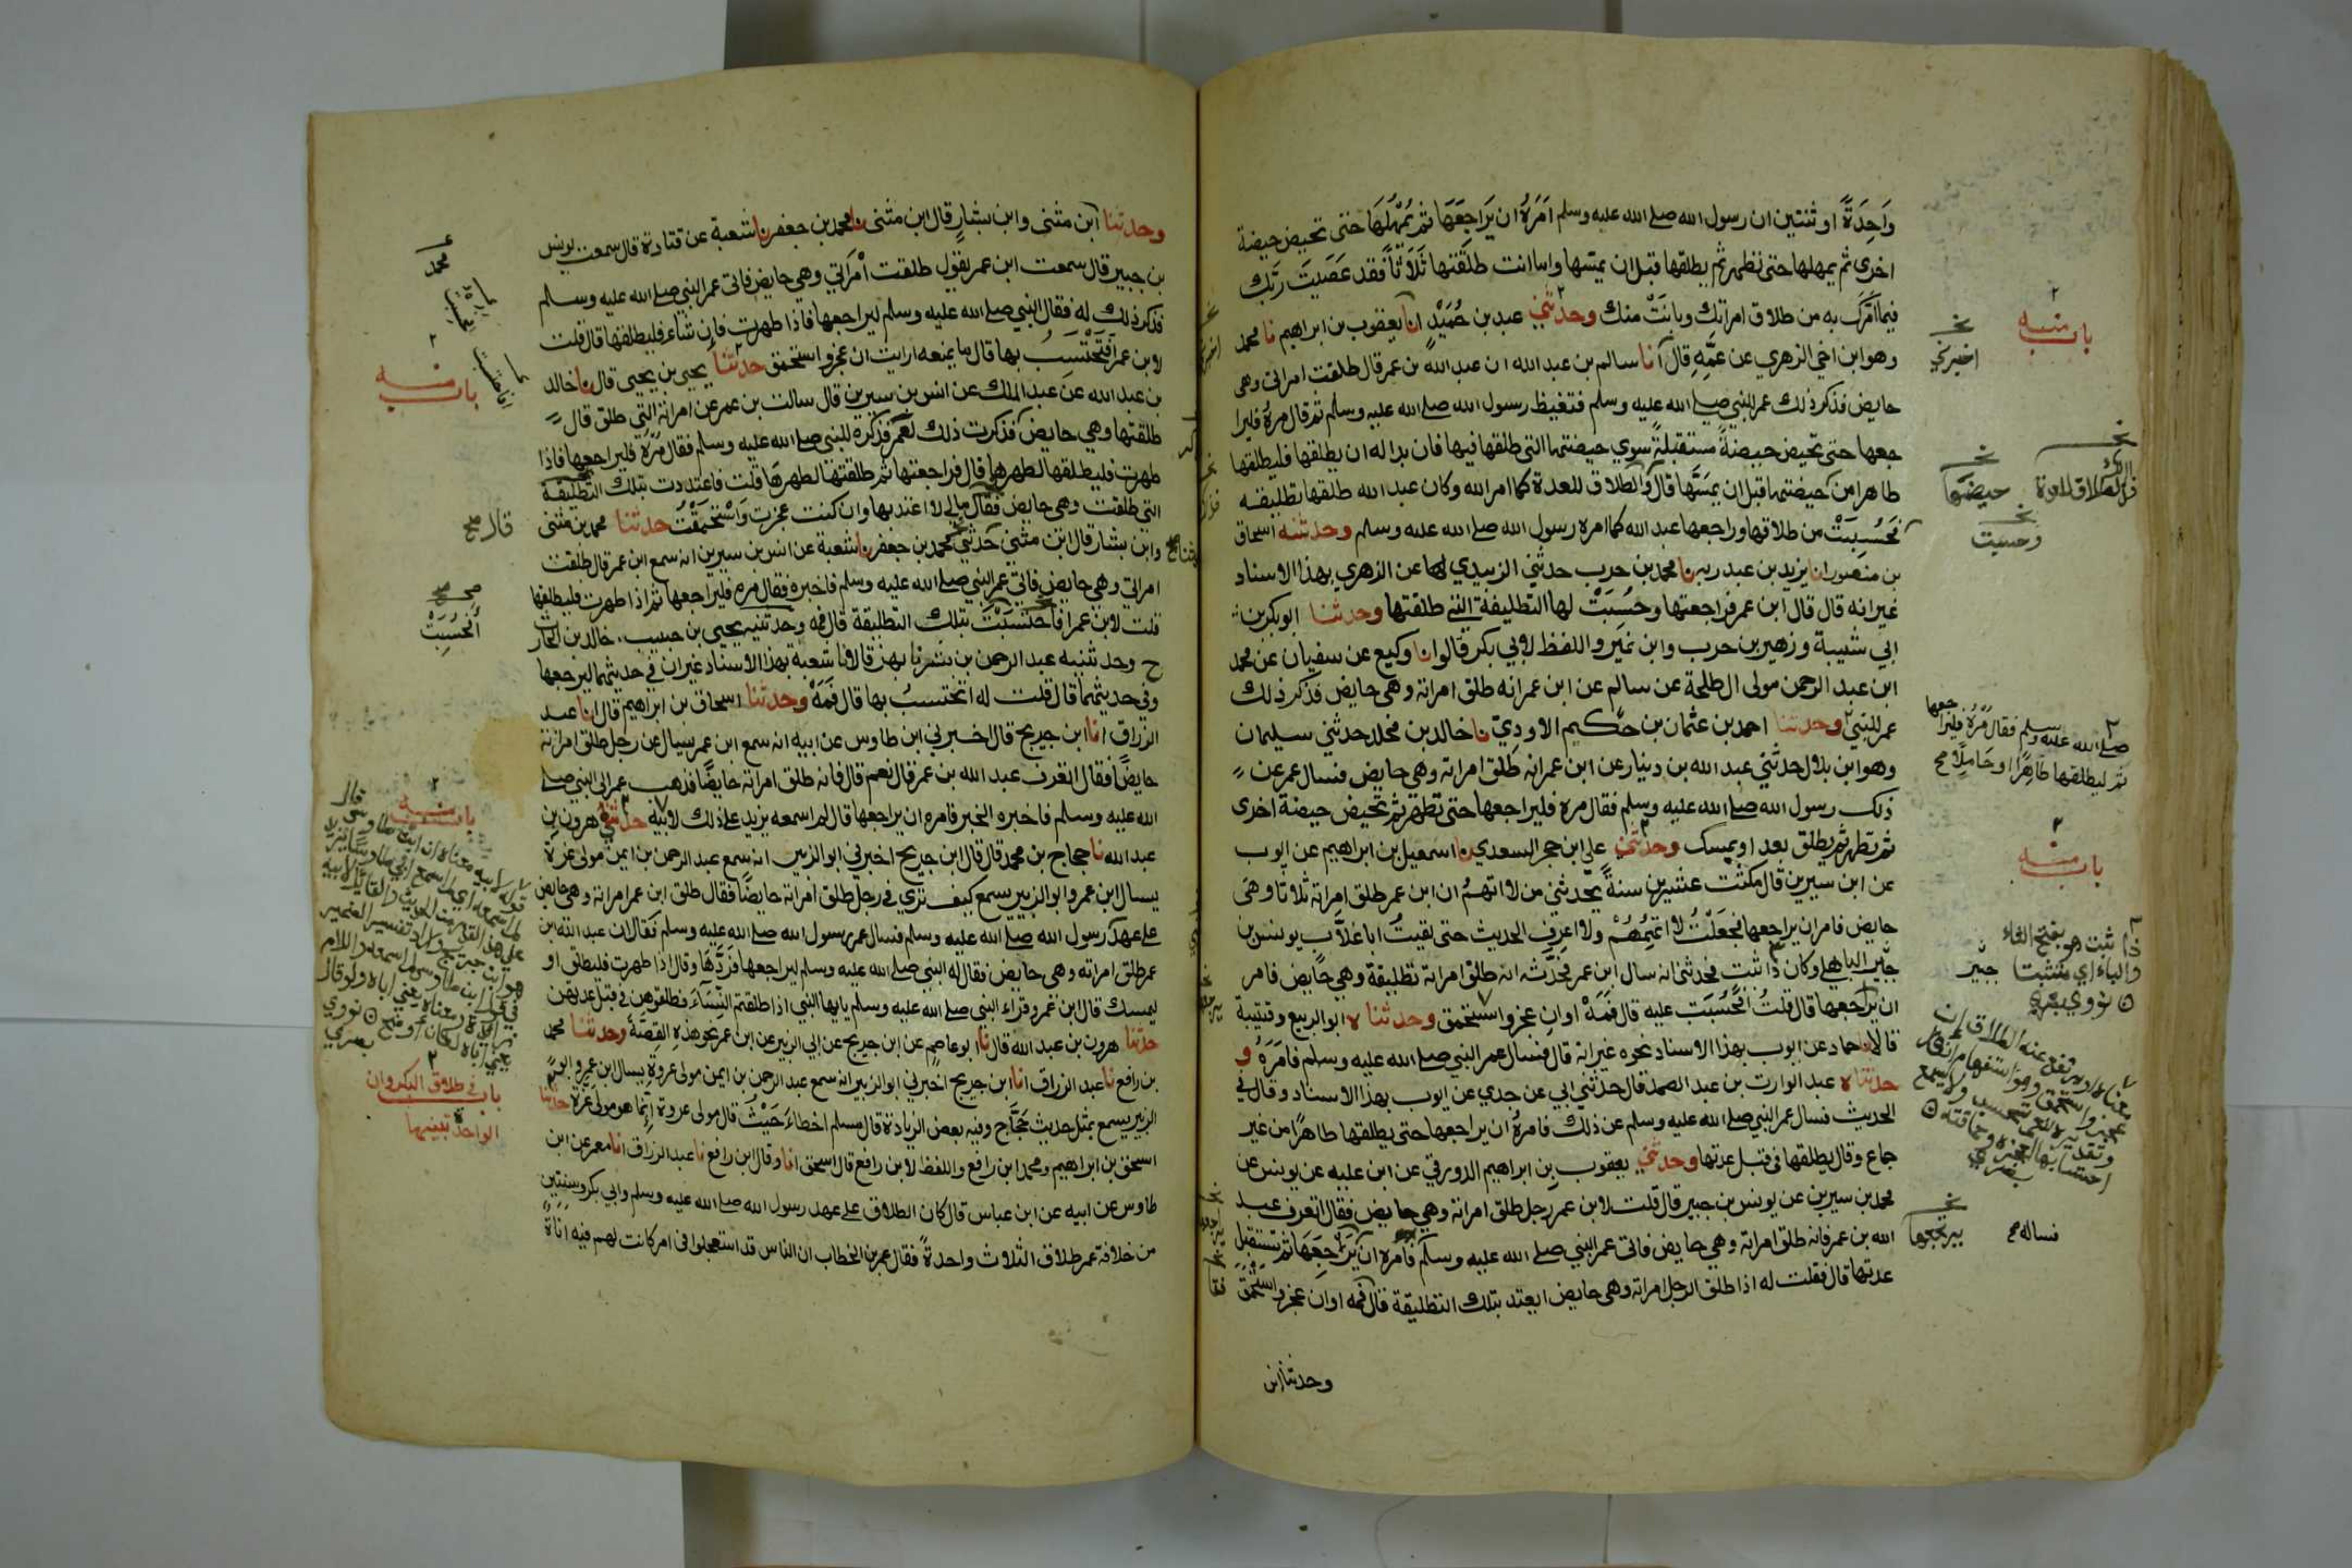 وَاحِدَةً او ثنتين ان رسول الله صلى الله عليه وسلم اَمَرَهُ ان يَرَاجِعَهَا ثم يُمْهِلَهَا حتى تحيض حيضة
اخرى ثم يمهلها حتى تطهر ثم يطلقها قبل ان يمسها واما انت طلقتها ثَلَاثًا فقد عَصَيتَ ربَّك
فيما اَمَرَك به من طلاق امراتك وبانَتْ منك وحدثني عبد بن حُمَيْدٍ انا يعقوب بن ابراهيم نا محمد
وهو ابن اخي الزهري عن عَمِّهِ قال انا سالم بن عبد الله ان عبد الله بن عمر قال طلقت امراتي وهي
حايض فذكر ذلك عمر للنبي صلى الله عليه وسلم فتغيظ رسول الله صلى الله عليه وسلم ثم قال مرهُ فليرا
جعها حتى تحيض حيضةً مستقبلةً سوي حيضتها التي طلقها فيها فان بدا له ان يطلقها فليطلقها
طاهرا من حيضتها قبل ان يمسَّها قال والطلاق للعدة كما امر الله وكان عبد الله طلقها تطليقه
فحُسِبَتْ من طلاقها وراجعها عبد الله كما امره رسول الله صلى الله عليه وسلم وحدثنيه اسحاق
بن منصور انا يزيد بن عبد ربه نا محمد بن حرب حدثني الزبيدي عن الزهري بهذا الاسناد
غير انه قال قال ابن عمر فراجعتها وحُسِبَتْ لها التطليقة التي طلقتها وحدثنا ابو بكر بن
ابي شيبة وزهير بن حرب وابن نمير واللفظ لابي بكر قالوا نا وكيع عن سفيان عن محمد
ابن عبد الرحمن مولى ال طلحة عن سالم عن ابن عمر انه طلق امراته وهي حايض فذكر ذلك
عمر للنبي وحدثنا احمد بن عثمان بن حكيم الاودي نا خالد بن مخلد حدثني سليمان
وهو ابن بلال حدثني عبد الله بن دينار عن ابن عمر انه طلق امراته وهي حايض فسال عمر عن
ذلك رسول الله صلى الله عليه وسلم فقال مره فليراجعها حتى تطهر ثم تحيض حيضة اخرى
ثم تطهر ثم يطلق بعد او يمسك وحدثني علي بن حجر السعدي نا اسمعيل بن ابراهيم عن ايوب
عن ابن سيرين قال مكثت عشرين سنةً يحدثني من لا اتهمُ ان ابن عمر طلق امراته ثلاثا وهي
حايض فامر ان يراجعها فجعلْتُ لا اتهمُهُمْ ولا اعرف الحديث حتى لقيتُ ابا غلَّاب يونس بن
جبير الباهلي وكان ذا ثبت فحدثني انه سال ابن عمر فحدَّثه انه طلق امراته تطليقة وهي حايض فامر
ان يراجعها قال قلتُ افحُسِبَت عليه قال فَمَهْ اوان عجز واستحمق وحدثناه ابو الربيع وقتيبة
قالا نا حماد عن ايوب بهذا الاسناد نحوه غير انه قال فسال عمر النبي صلى الله عليه وسلم فامَرَهُ و
حدثناه عبد الوارث بن عبد الصمد قال حدثني ابي عن جدي عن ايوب بهذا الاسناد وقال في
الحديث فسال عمر النبي صلى الله عليه وسلم عن ذلك فامرهُ ان يراجعها حتى يطلقها طاهرًا من غير
جماع وقال يطلقها في قبل عدتها وحدثني يعقوب بن ابراهيم الدورقي عن ابن عليه عن يونس عن
محمد بن سيرين عن يونس بن جبير قال قلت لابن عمر رجل طلق امراته وهي حايض فقال اتعرف عبد
الله بن عمر فانه طلق امراته وهي حايض فاتى عمر النبي صلى الله عليه وسلم فامره ان يَرَاجِعَهَا ثم تستقبل
عدتها قال فقلت له اذا طلق الرجل امراته وهي حايض ايعتد بتلك التطليقة قال فمه اوان عجز واستحمق
وحدثنا ابن
باب منه
اخبرني
حيضتها
وحسبت
صلى الله عليه وسلم فقال مُرهُ فليراجعها
ثم ليطلقها طاهرًا او حاملًا صح
باب منه
ذا ثبت هو بفتح الثاء
والباء اي متثبتا
جبير
نووي بعربي
فساله صح
يرجعها
وحدثنا ابن مثنى وابن بشارٍ قال ابن مثنى نا محمد بن جعفر نا شعبة عن قتادة قال سمعت يونس
بن جبير قال سمعت ابن عمر يقول طلقت امْرَاتي وهي حايض فاتى عمر النبي صلى الله عليه وسلم
فذكر ذلك له فقال النبي صلى الله عليه وسلم ليراجعها فاذا طهرت فان شاء فليطلقها قال قلت
لابن عمر افتَحْتَسِبُ بها قال ما يمنعه ارايت ان عجز واستحمق حدثنا يحيى بن يحيى قال نا خالد
بن عبد الله عن عبد الملك عن انس بن سيرين قال سالت بن عمر عن امراته التي طلق قال
طلقتها وهي حايض فذكرت ذلك لعمر فذكره للنبي صلى الله عليه وسلم فقال مُرْهُ فليراجعها فاذا
طهرت فليطلقها لطهرها قال فراجعتها ثم طلقتها لطهرها قلت فاعتددت بتلك التطليقة
التي طلقت وهي حايض فقال مالي لا اعتد بها وان كنت عجزت وَاسْتَحمَقْتُ حدثنا محمد بن مثنى
وابن بشار قال ابن مثنى حدثني محمد بن جعفر نا شعبة عن انس بن سيرين انه سمع ابن عمر قال طلقت
امراتي وهي حايض فاتى عمر النبي صلى الله عليه وسلم فاخبره فقال مره فليراجعها ثم اذا طهرت فليطلقها
قلت لابن عمر افاحتسَبْتَ بتلك التطليقة قال فمه وحدثنيه يحيى بن حبيب خالد بن الحارث
ح وحدثنيه عبد الرحمن بن بشر نا بهز قالا نا شعبة بهذا الاسناد غير ان في حديثهما ليرجعها
وفي حديثهما قال قلت له اتحتسبُ بها قال فَمَهْ وحدثنا اسحاق بن ابراهيم قال انا عبد
الرزاق انا ابن جريج قال اخبرني ابن طاوس عن ابيه انه سمع ابن عمر يسال عن رجل طلق امراته
حايضًا فقال اتعرف عبد الله بن عمر قال نعم قال فانه طلق امراته حايضًا فذهب عمر الى النبي صلى
الله عليه وسلم فاخبره الخبر فامره ان يراجعها قال لم اسمعه يزيد على ذلك لابيه حدثني هرون بن
عبد الله نا حجاج بن محمد قال قال ابن جريج اخبرني ابو الزبير انه سمع عبد الرحمن بن ايمن مولى عزة
يسال ابن عمر وابو الزبير يسمع كيف تري في رجل طلق امراته حايضًا فقال طلق ابن عمر امراته وهي حايض
على عهد رسول الله صلى الله عليه وسلم فسال عمر رسول الله صلى الله عليه وسلم فقال ان عبد الله بن
عمر طلق امراته وهي حايض فقال له النبي صلى الله عليه وسلم ليراجعها فَرَدَّهَا وقال اذا طهرت فليطلق او
ليمسك قال ابن عمر وقراء النبي صلى الله عليه وسلم يايها النبي اذا طلقتم النِّسَآءَ فطلقوهن في قبل عدتهن
حدثنا هرون بن عبد الله قال نا ابو عاصم عن ابن جريج عن ابي الزبير عن ابن عمر نحو هذهِ القِصَّة وحدثنا محمد
بن رافع نا عبد الرزاق انا ابن جريج اخبرني ابو الزبير انه سمع عبد الرحمن بن ايمن مولى عروة يسال ابن عمر وابو
الزبير يسمع بمثل حديث حَجَّاج وفيه بعض الزيادة قال مسلم اخطاءَ حَيْثُ قال مولى عروة إنّما هو مولى عزة حدثنا
اسحق بن ابراهيم ومحمد ابن رافع واللفظ لابن رافع قال اسحق انا وقال ابن رافع نا عبد الرزاق انا معمر عن ابن
طاوس عن ابيه عن ابن عباس قال كان الطلاق على عهد رسول الله صلى الله عليه وسلم وابي بكر وسنتين
من خلافة عمر طلاق الثلاث واحدةً فقال عمر بن الخطاب ان الناس قد استعجلوا في امر كانت لهم فيه اناةً
محمد
باب منه
قال صح
أفحُسِبَتْ
باب منه
باب في طلاق البكر وان
الواحدة تبينها